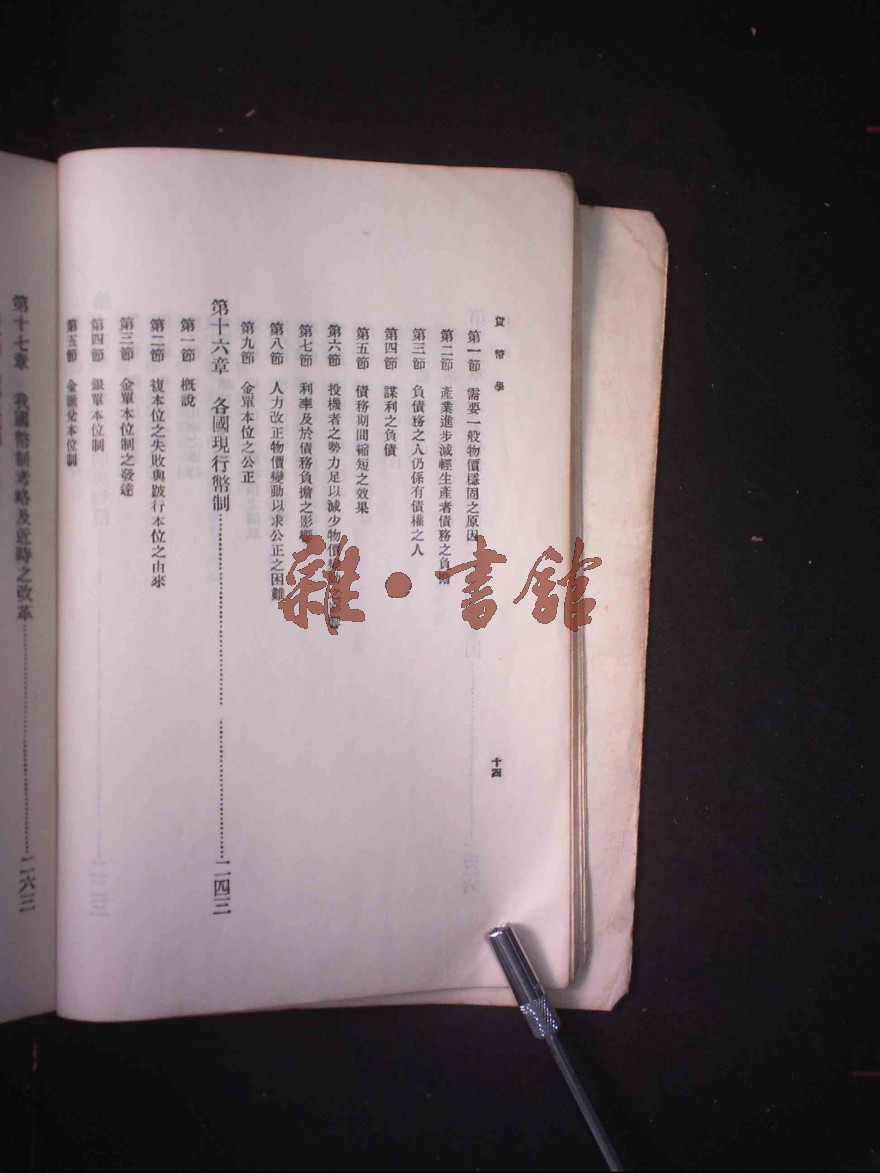 貨幣學
十四
第一節 需要一般物價穩固之原因
第二節 產業進步減輕生產者債務之負擔
第三節 負債務之人仍係有債權之人
第四節 謀利之負債
第五節 債務期間縮短之效果
第六節 投機者之勢力足以減少物價變動之
第七節 利率及於債務負擔之影響
第八節 人力改正物價變動以求公正之困難
第九節 金單本位之公正
第十六章 各國現行幣制……二四三
第一節 概說
第二節 複本位之失敗與跛行本位之由來
第三節 金單本位制之發達
第四節 銀單本位制
第五節 金匯兌本位制
第十七章 我國幣制考略及近時之改革……二六三
雜·書館